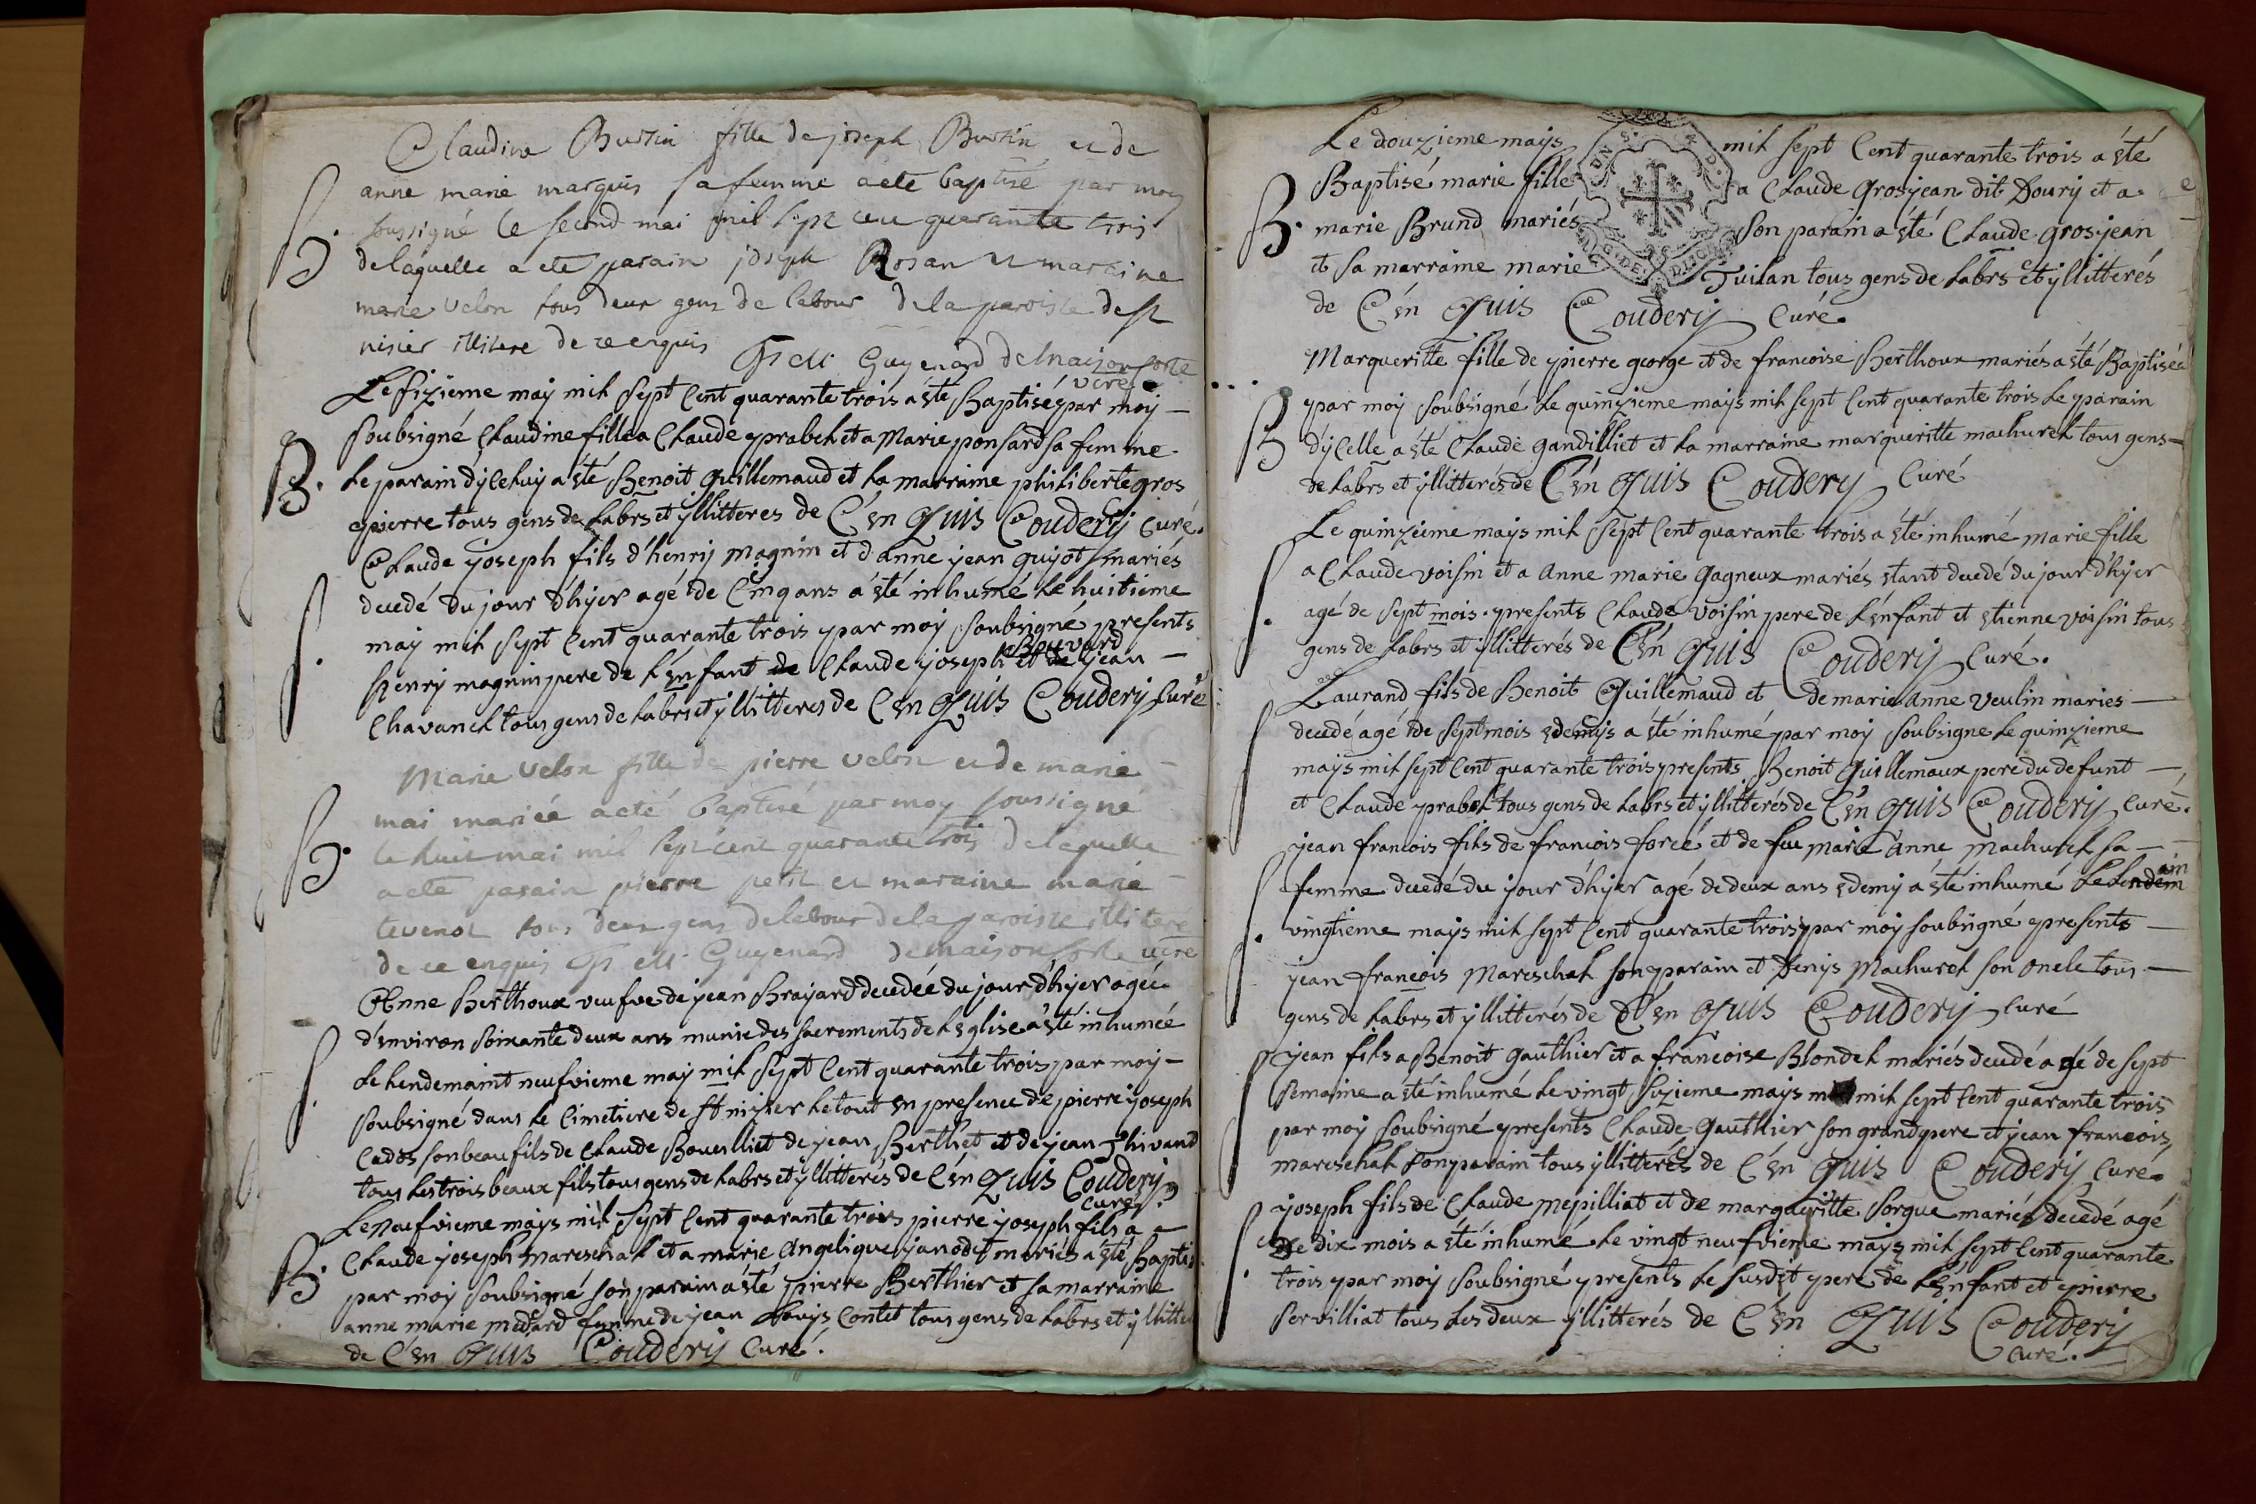 Claudine Burtin fille de joseph Burtin et de
anne marie marquis sa femme a ete baptisé par moy
B. soussigné le second mai mil sept cent quarante trois
de laquelle a ete parain joseph Rosan et maraine
marie velon tous deux gens de labour de la paroisse de st
nisier illitere de ce enquis Guyenard de maisonforte
vire
Le sizieme may mil sept Cent quarante trois a été Baptisé par moy
soubsigné Claudine fille a Claude prabel et a Marie ponsard sa femme
B. Le parain dyceluy a été Benoit Guillemaud et La marraine philiberte gros
pierre tous gens de Labrs et yllitteres de C'en Quis Couderij Curé.
Claude joseph fils d'henry magnin et d'anne jean guijot mariés
decedé du jour d'hyer agé de Cinq ans a été inhumé Le huitieme
may mil sept Cent quarante trois par moy soubsigné presents
Bouvard
Henry magnin pere de L'enfant Claude joseph et jean
Chavanel tous gens de Labrs et yllitteres de C'en Quis Couderij Curé
Marie velon fille de pierre velon et de marie
mai mariée a eté baptisé par moy soussigné
B. le huit mai mil sept cent quarante trois de laquelle
a ete parain pierre petit et maraine marie
tevenot tous deux gens de labour de la paroisse illiteré
de ce enquis Guyenard de maisonforte vire
Anne Berthoux veufve de jean Brayard decedée du jour d'hyer agée
d'environ soixante deux ans munie des sacrements de L'eglise a été inhumée
Le Lendemaint neufvieme may mil sept Cent quarante trois par moy
soubsigné dans Le Cimetiere de St nizier Le tout en presence de pierre joseph
Cados son beau fils de Claude Bouilliet de jean Berthet et de jean
tous Les trois beaux fils tous gens de Labrs et yllitterés de C'en Quis Couderij
Curé
Le Neufvieme mays mil sept Cent quarante trois pierre joseph fils a
B. Claude joseph mareschal et a marie Angelique janodet mariés a été Baptisé
par moy soubsigné son parain a été pierre Berthier et sa marraine
anne marie medard femme de jean Louys Contet tous gens de Labrs et yllitte
de C'en Quis Couderij Curé.
Le douzieme mays mil sept Cent quarante trois a été
Baptisé marie fille a Claude Grosjean dit Doury et a
B. marie Brund mariés son parain a été Claude grosjean
et sa marraine marie Tuilan tous gens de Labrs et yllitterés
de C'en Quis Couderij Curé.
Margueritte fille de pierre george et de francoise Berthoux mariés a été Baptisée
par moy soubsigné Le quinzieme mays mil sept Cent quarante trois Le parain
B d'ycelle a été Claude gandilliet et La marraine margueritte machurel tous gens
de Labrs et yllitterés de C'en Quis Couderij Curé
Le quinzieme mays mil sept Cent quarante trois a été inhumé marie fille
a Claude voisin et a Anne marie Gagneux mariés etant decedé du jour d'hyer
agé de sept mois. presents Claude voisin pere de L'enfant et etienne voisin tous
gens de Labrs et yllitterés de C'en Quis Couderij Curé.
Laurand fils de Benoit Guillemaud et de marie Anne veulin mariés
decedé agé de sept mois & demys a été inhumé par moy soubsigné Le quinzieme
mays mil sept Cent quarante trois presents Benoit Guillemaux pere du defunt
et Claude prabel tous gens de Labrs et yllitterés de C'en Quis Couderij Curé.
jean francois fils de francois forcé et de feu marie Anne machurel sa
femme decedé du jour d'hyer agé de deux ans & demy a été inhumé Le Lendemain
vingtieme mays mil sept Cent quarante trois par moy soubsigné presents
jean françois Mareschal son parain et Denys Machurel son oncle tous
gens de Labrs et yllitterés de C'en Quis Couderij Curé
jean fils a Benoit gauthier et a francoise Blondel mariés decedé agé de sept
semaine a été inhumé Le vingt sizieme mays mil sept Cent quarante trois
par moy soubsigné presents Claude Gauthier son grand pere et jean francois
mareschal son parain tous yllitterés de C'en Quis Couderij Curé.
joseph fils de Claude mepilliat et de margueritte sorgue mariés decedé agé
de dix mois a été inhumé Le vingt neufvieme mays mil sept Cent quarante
trois par moy soubsigné presents Le susdit pere de L'enfant et pierre
servilliat tous Les deux yllitterés de C'en Quis Couderij
Curé.